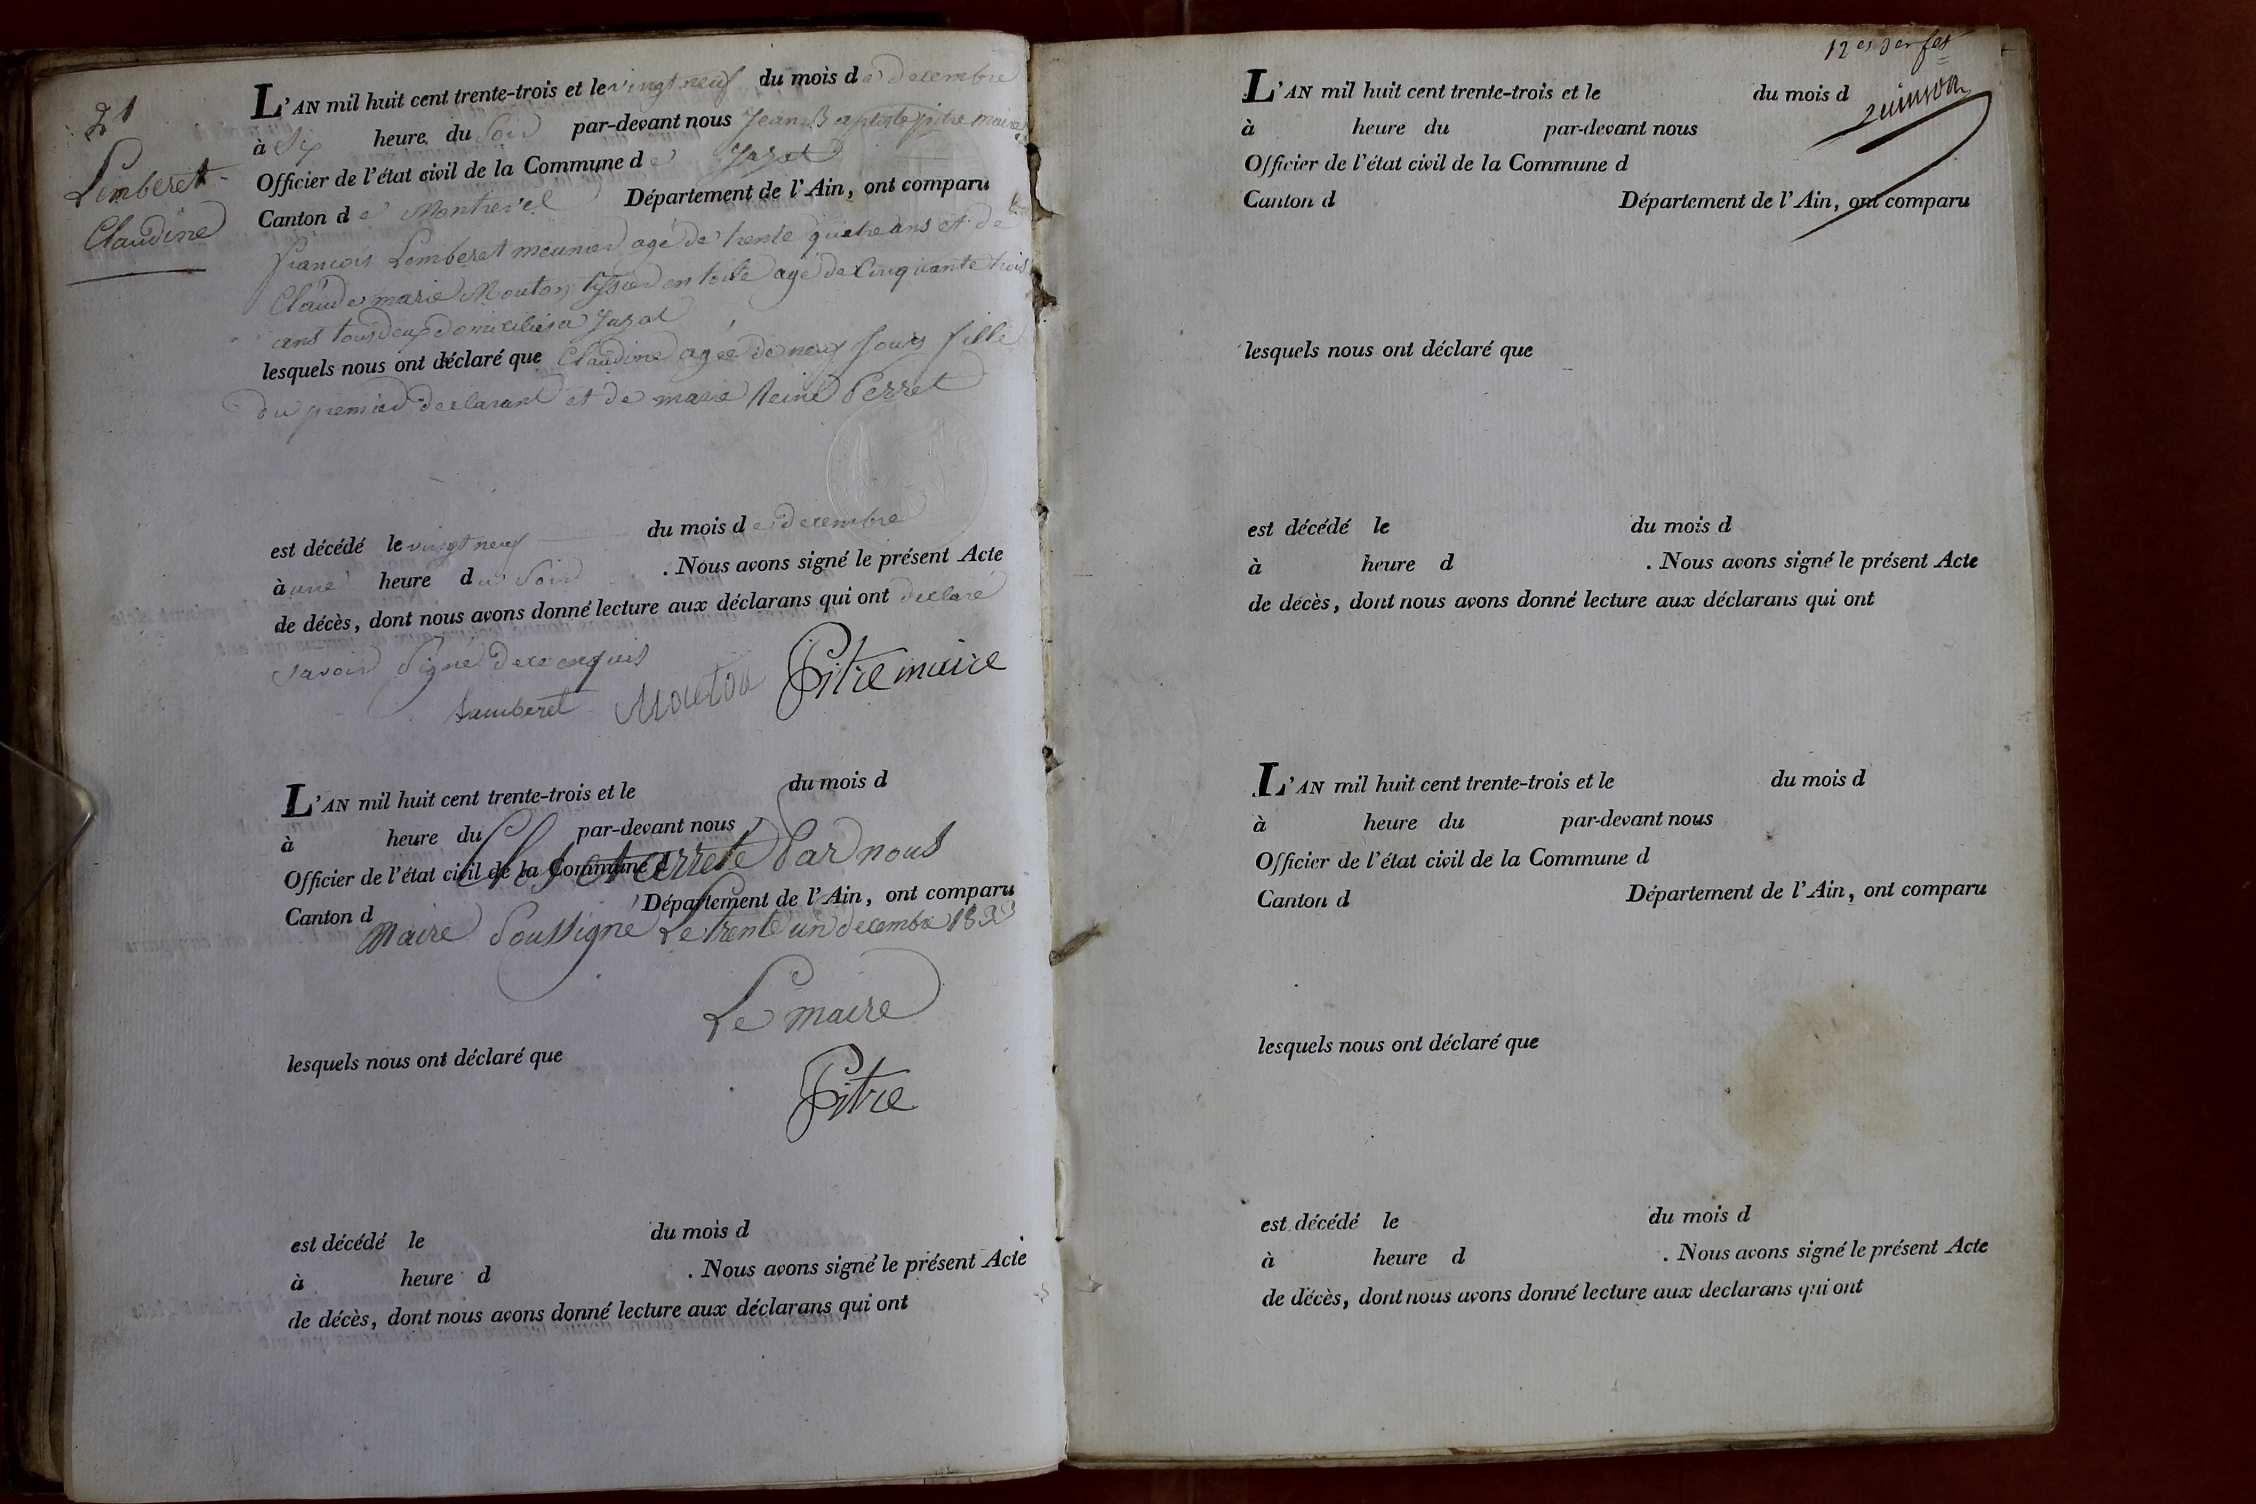 21
Lemberet
Claudine
L'AN mil huit cent trente-trois et le vingt neuf du mois de decembre
à Six heure du Soir par-devant nous Jean Baptiste pitre maire
Officier de l'état civil de la Commune de Jayat
Canton de Montrevel Département de l'Ain, ont comparu
françois Lemberet meunier agé de trente quatre ans et de
Claude marie Mouton tissier en toile agé de Cinquante trois
ans tous deux domiciliés a Jayat
lesquels nous ont déclaré que Claudine agée de neuf Jours fille
du premier declarant et de marie Reine Perret
est décédé le vingt neuf du mois de decembre
à une heure du Soir . Nous avons signé le présent Acte
de décès, dont nous avons donné lecture aux déclarans qui ont declaré
savoir Signé de ce enquis
Lamberet Mouton Pitre maire
L'AN mil huit cent trente-trois et le du mois d
à heure du par-devant nous
Clos et arreté Par nous
Officier de l'état civil de la Commune d
Canton d Département de l'Ain, ont comparu
Maire Soussigné Le trente un decembre 1833
Le maire
lesquels nous ont déclaré que
Pitre
est décédé le du mois d
à heure d . Nous avons signé le présent Acte
de décès, dont nous avons donné lecture aux déclarans qui ont
L'AN mil huit cent trente-trois et le du mois d
à heure du par-devant nous
Officier de l'état civil de la Commune d
Canton d Département de l'Ain, ont comparu
lesquels nous ont déclaré que
est décédé le du mois d
à heure d . Nous avons signé le présent Acte
de décès, dont nous avons donné lecture aux déclarans qui ont
L'AN mil huit cent trente-trois et le du mois d
à heure du par-devant nous
Officier de l'état civil de la Commune d
Canton d Département de l'Ain, ont comparu
lesquels nous ont déclaré que
est décédé le du mois d
à heure d . Nous avons signé le présent Acte
de décès, dont nous avons donné lecture aux declarans qui ont